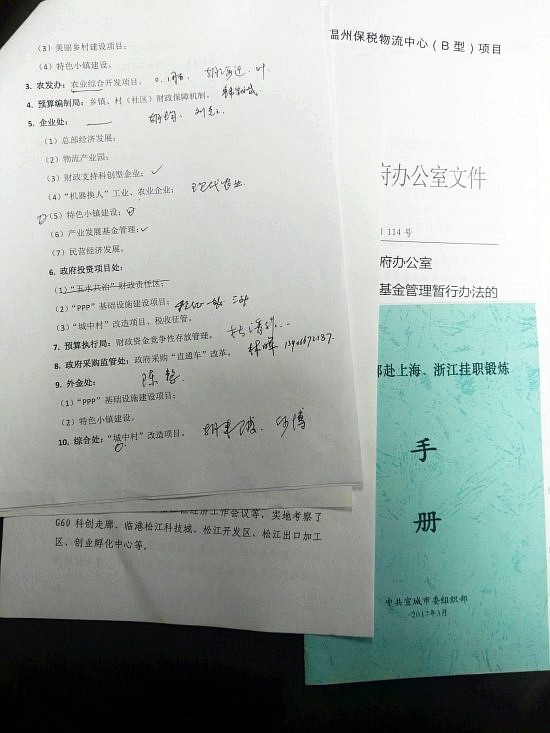 (3) 美丽乡村建设项目;
(4) 特色小镇建设。
3. 农发办:农业综合开发项目。
4. 预算编制局:乡镇、村(社区)财政保障机制。
5. 企业处:
(1) 总部经济发展;
(2) 物流产业园;
(3) 财政支持科创型企业;
(4) “机器换人”工业、农业企业; 现代农业
(5) 特色小镇建设;
(6) 产业发展基金管理;
(7) 民营经济发展。
6. 政府投资项目处:
(1) “五水共治”财政责任区;
(2) “PPP”基础设施建设项目;
(3) “城中村”改造项目、税收征管。
7. 预算执行局:财政资金竞争性存放管理。
8. 政府采购监管处:政府采购“直通车”改革。
9. 外金处:
(1) “PPP”基础设施建设项目;
(2) 特色小镇建设。
10. 综合处:“城中村”改造项目。
经济工作会议等,实地考察了
G60 科创走廊、临港松江科技城、松江开发区、松江出口加工
区、创业孵化中心等。
温州保税物流中心(B型)项目
府办公室文件
114 号
府办公室
基金管理暂行办法的
部赴上海、浙江挂职锻炼
手
册
中共宣城市委组织部
2017年3月